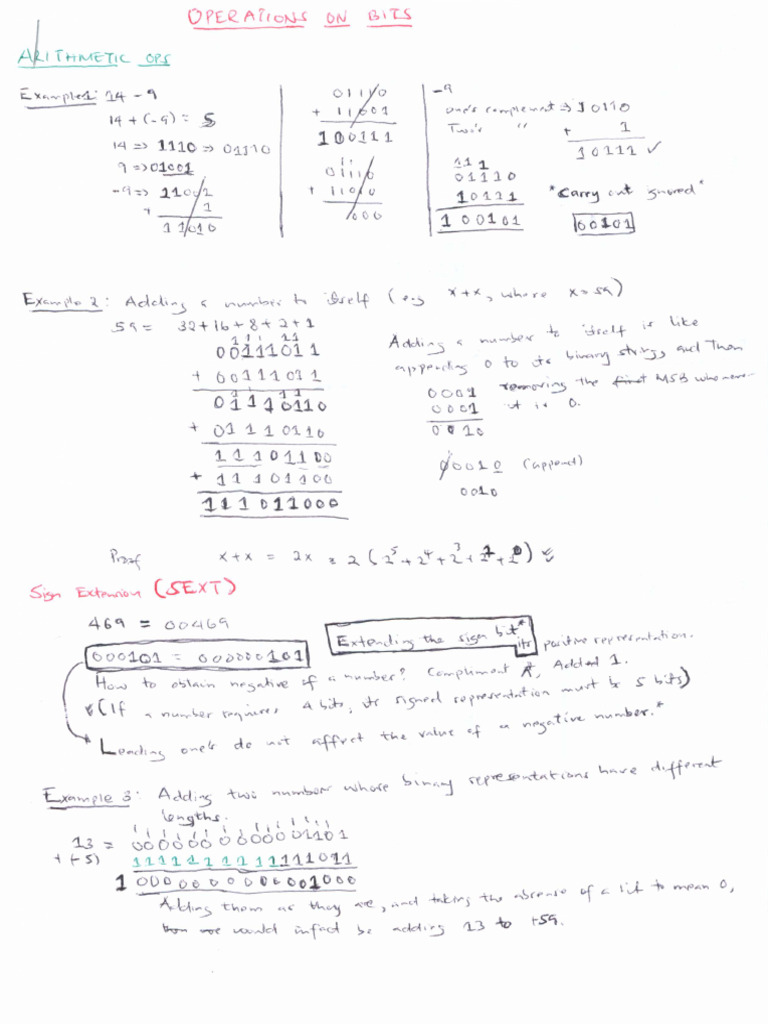 OPERATIONS ON BITS
ARITHMETIC OPS
Example 1: 14 - 9
14 + (-9) = 5
14 => 1110 => 01110
9 => 01001
-9 => 11001
+ 1
11010
01110
+ 11001
100111
11
01110
+ 11010
000
-9
one's complement => 10110
Two's " + 1
10111 ✓
111
01110
10111
100101
*Carry out ignored*
00101
Example 2: Adding a number to itself (e.g x+x, where x = 59)
59 = 32+16+8+2+1
00111011
+ 00111011
01110110
+ 01110110
11101100
+ 11101100
111011000
Adding a number to itself is like
appending 0 to its binary string, and then
removing the first MSB whenever
it is 0.
0001
0001
0010
00010 (append)
0010
Proof x+x = 2x = 2 (2⁵+2⁴+2³+2¹+2⁰)
Sign Extension (SEXT)
469 = 00469
000101 = 000000101
Extending the sign bit*
How to obtain negative of a number? Complement its positive representation. Add 1.
(If a number requires 4 bits, its signed representation must be 5 bits)
* Leading one's do not affect the value of a negative number.*
Example 3: Adding two number whose binary representations have different
lengths.
13 = 0000000000001101
+ (-5) 1111111111111011
1 0000000000001000
Adding them as they are, and taking the absense of a bit to mean 0,
then we would infact be adding 13 to +59.